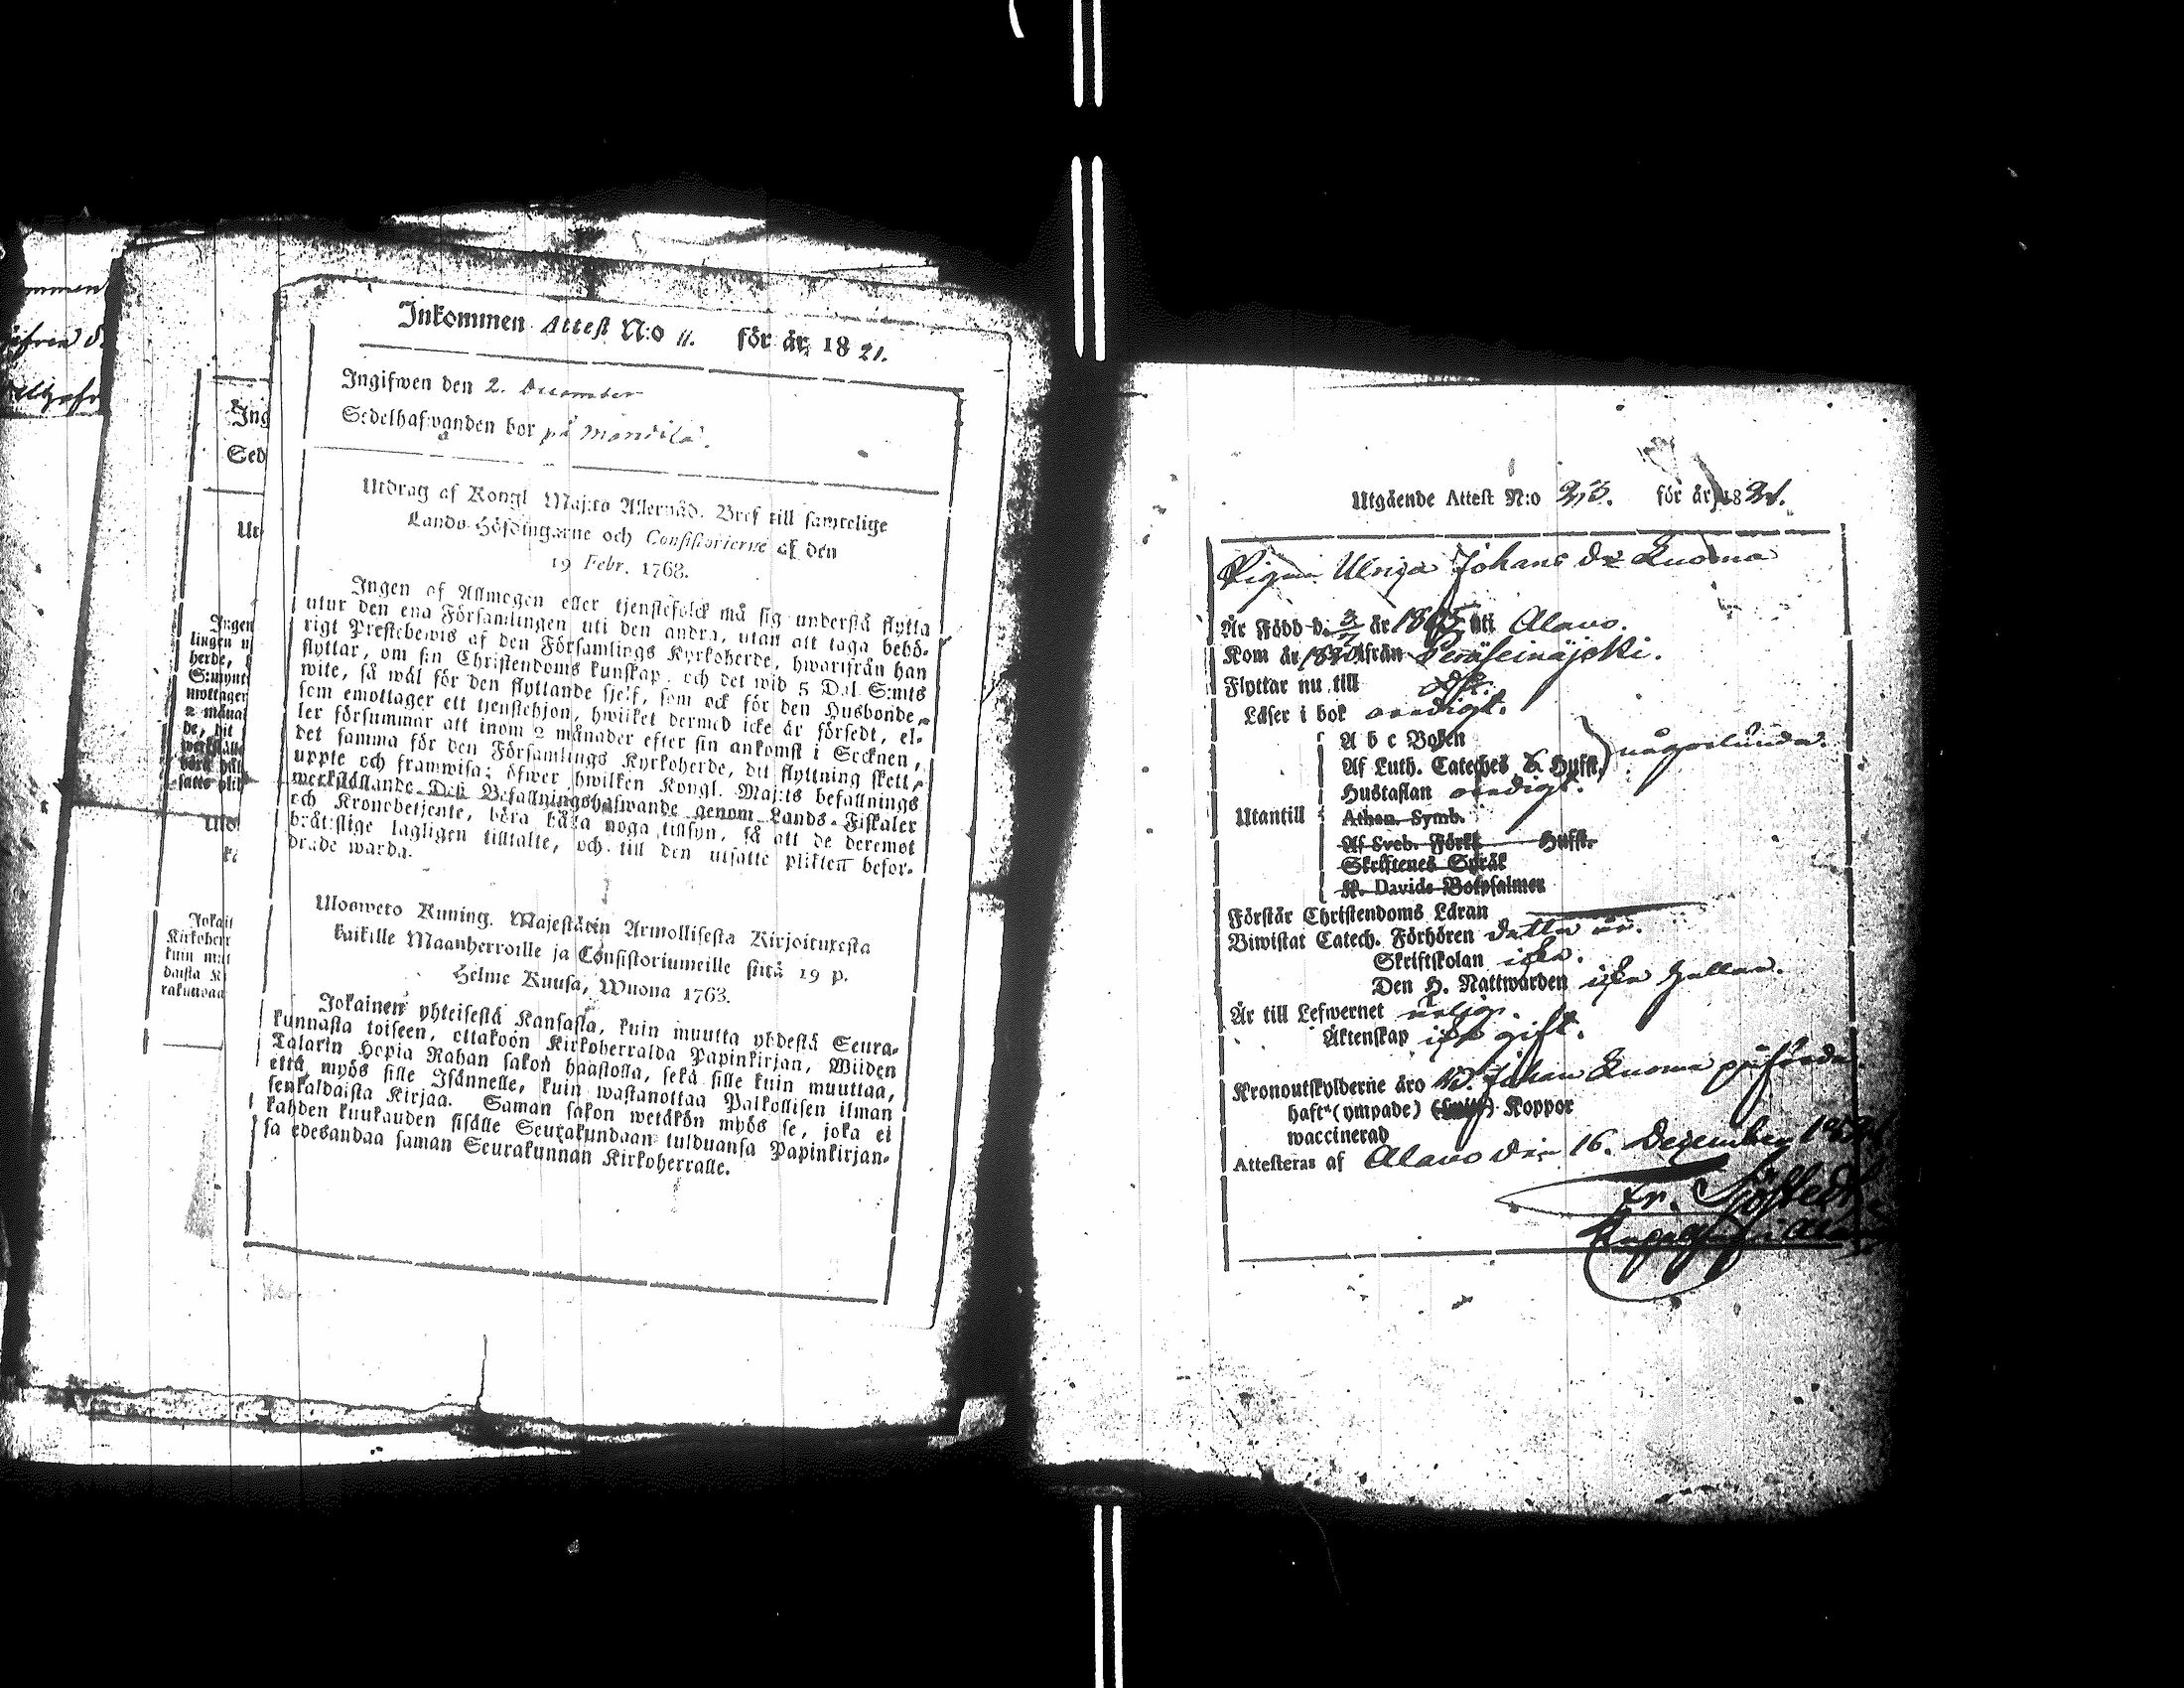 ommen
Ing
Sed
Ut
Ingen
lingen u
herde,
S:mynt
mottager
2 måna
de, dit
werkställe
böra hål
satte plik
Ulo
Jokait
Kirkoherr
kuin mut
daista K
rakunnad
Inkommen Attest N:o 11. för år 1821.
Ingifwen den 2. December
Sedelhafwanden bor på
Utdrag af Kongl Maj:ts Allernåd. Bref till samtelige
Lands-Höfdingarne och Consistorierne af den
19 Febr. 1768.
Ingen af Allmogen eller tjenstefolck må sig understå flytta
utur den ena Församlingen uti den andra, utan att taga behö-
rigt Prestebewis af den Församlings Kyrkoherde, hwarifrån han
flyttar, om sin Christendoms kunskap, och det wid 5 Dal S:mts
wite, så wäl för den flyttande sjelf, som ock för den Husbonde,
som emottager ett tjenstehjon, hwilket dermed icke är försedt, el-
ler försummar att inom 2 månader efter sin ankomst i Socknen,
det samma för den Församlings Kyrkoherde, dit flyttning skett,
uppte och framwisa; öfwer hwilken Kongl. Maj:ts befallnings
werkställande Dess Befallningshafwande genom Lands-Fiskaler
och Kronobetjente, böra hålla noga tillsyn, så att de deremot
brätslige lagligen tilltalte, och till den utsatte plikten befor-
drade warda.
Uloswето Kuning. Majestätin Armollisesta Kirjoituxesta
kaikille Maanherroille ja Consistoriumeille siitä 19 p.
Helme Kuusa, Wuona 1763.
Jokainen yhteisestä Kansasta, kuin muutta yhdestä Seura-
kunnasta toiseen, ottakoon Kirkoherralda Papinkirjan, Wiiden
Talarin Hopia Rahan sakon haastolla, sekä sille kuin muuttaa,
että myös sille Isännelle, kuin wastanottaa Palkollisen ilman
senkaldaista Kirjaa. Saman sakon wetäkön myös se, joka ei
kahden kuukauden sisälle Seurakundaan tulduansa Papinkirjan-
sa edesandaa saman Seurakunnan Kirkoherralle.
Utgående Attest N:o 23. för år 1821.
Pigan Ulrica Johans Dr Kuoma
Är Född d. 3/7 år 1805 uti Alavo.
Kom år 1820 ifrån Peräseinäjoki.
Flyttar nu till
Läser i bok
A b c Boken
Af Luth. Cateches & Hufst. någorlunda.
Hustaflan
Utantill Athan. Symb.
Af Sveb. Förkl Hufst.
Skriftenes Språk
K. Davids Botpsalmer
Förstår Christendoms Läran
Biwistat Catech. Förhören detta år.
Skriftskolan icke.
Den H. Nattwarden icke heller.
Är till Lefwernet ärlig.
Äktenskap icke gift.
Kronoutskylderne äro Johan Kuoma påförde.
haft (ympade) Koppor
waccinerad
Attesteras af Alavo den 16. December 1821
Fr. Sjöstedt